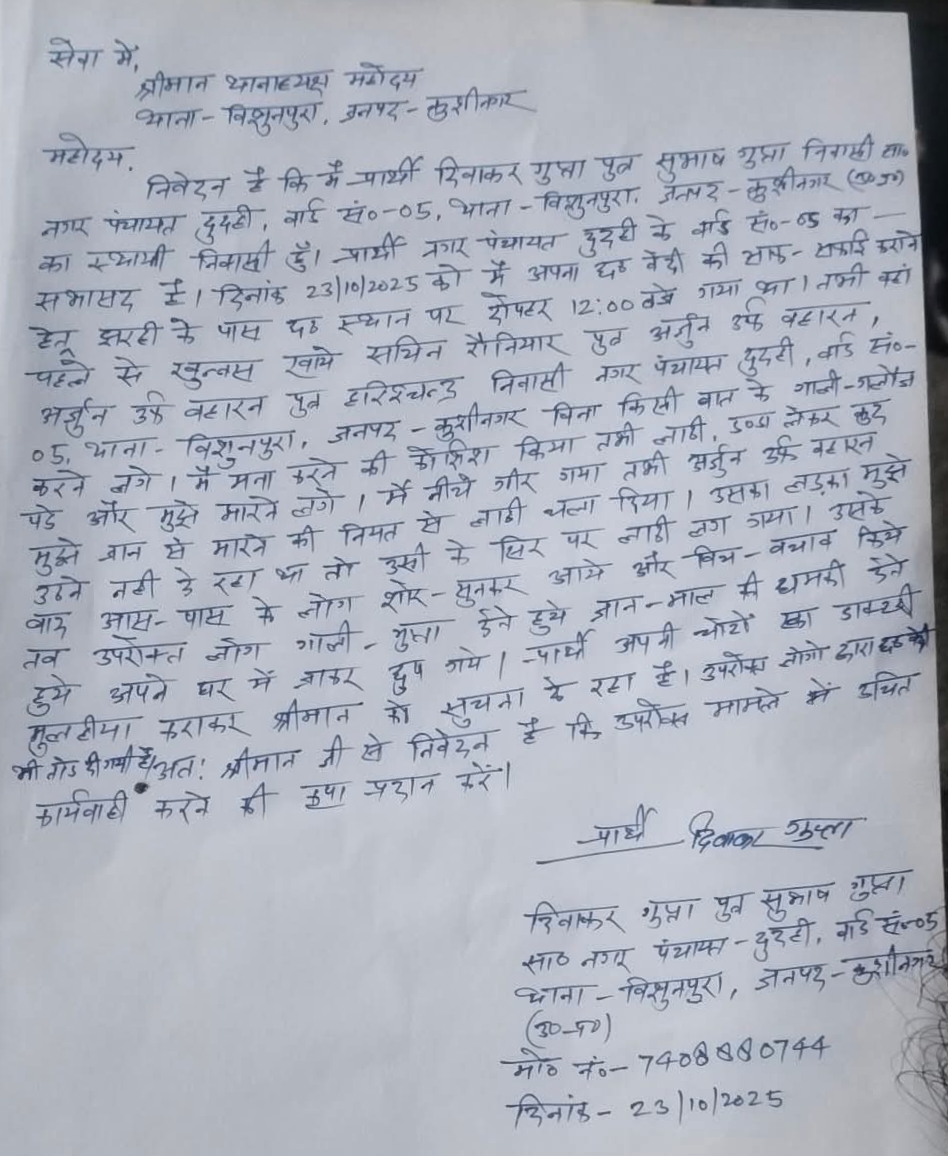 सेवा में,
श्रीमान थानाध्यक्ष महोदय
थाना - विशुनपुरा, जनपद - कुशीनगर
महोदय,
निवेदन है कि मैं प्रार्थी दिवाकर गुप्ता पुत्र सुभाष गुप्ता निवासी सा०
नगर पंचायत दुदही, वार्ड सं०-05, थाना - विशुनपुरा, जनपद - कुशीनगर (उ०प्र०)
का स्थायी निवासी हूँ। प्रार्थी नगर पंचायत दुदही के वार्ड सं०-05 का
सभासद है। दिनांक 23/10/2025 को मैं अपना छठ वेदी की साफ-सफाई कराने
हेतु झरही के पास छठ स्थान पर दोपहर 12:00 बजे गया था। तभी वहां
पहले से खुन्नस खाये सचिन रौनियार पुत्र अर्जुन उर्फ बहारन,
अर्जुन उर्फ बहारन पुत्र हरिश्चन्द्र निवासी नगर पंचायत दुदही, वार्ड सं०-
05, थाना - विशुनपुरा, जनपद - कुशीनगर बिना किसी बात के गाली-गलौज
करने लगे। मैं मना करने की कोशिश किया तभी लाठी, डण्डा लेकर कूद
पडे और मुझे मारने लगे। मैं नीचे गीर गया तभी अर्जुन उर्फ बहारन
मुझे जान से मारने की नियत से लाठी चला दिया। उसका लड़का मुझे
उठने नही दे रहा था तो उसी के सिर पर लाठी लग गया। उसके
बाद आस-पास के लोग शोर-सुनकर आये और बिच-बचाव किये
तब उपरोक्त लोग गाली-गुप्ता देते हुये जान-माल की धमकी देते
हुये अपने घर में जाकर छुप गये। प्रार्थी अपनी चोटों का डाक्टरी
मुलाहीया कराकर श्रीमान को सुचना दे रहा है। उपरोक्त लोगो द्वारा छठ वेदी
भी तोड दी गयी है। अतः श्रीमान जी से निवेदन है कि उपरोक्त मामले में उचित
कार्यवाही करने की कृपा प्रदान करें।
प्रार्थी दिवाकर गुप्ता
दिवाकर गुप्ता पुत्र सुभाष गुप्ता
सा० नगर पंचायत - दुदही, वार्ड सं०-05
थाना - विशुनपुरा, जनपद - कुशीनगर
(उ०प्र०)
मो० नं० - 7408880744
दिनांक - 23/10/2025